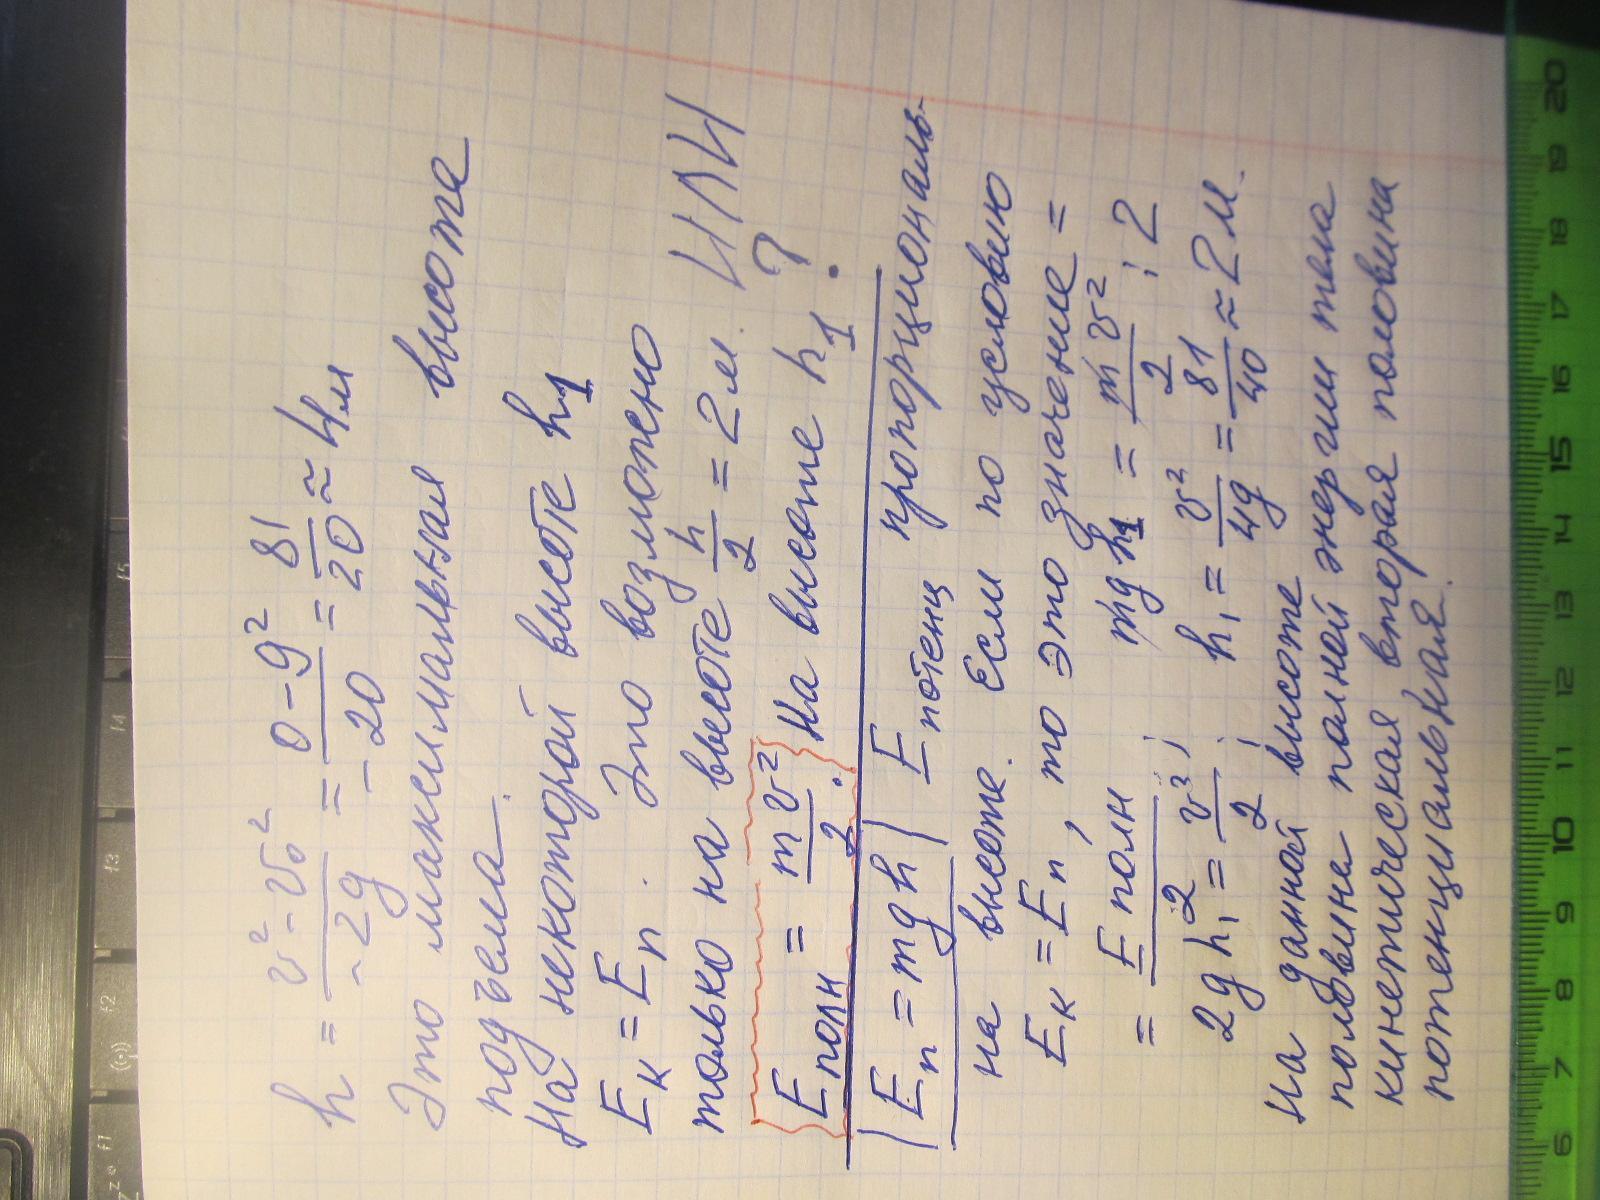 h = v² - v₀² / -2g = 0 - 9² / -20 = 81/20 ≈ 4м
Это максимальная высота
подъема.
На некоторой высоте h₁
Eк = Eп. Это возможно
только на высоте h/2 = 2м. ИЛИ
Eполн = mv²/2. На высоте h₁ ?
Eп = mgh Eпотенц пропорциональ-
на высоте. Если по условию
Eк = Eп, то это значение =
= Eполн/2; mgh₁ = mv²/2 : 2
2gh₁ = v²/2; h₁ = v²/4g = 81/40 ≈ 2м.
На данной высоте
половина полной энергии тела
кинетическая вторая половина
потенциальная.
f1
f2
f3
f4
f5
z
6 7 8 9 10 11 12 13 14 15 16 17 18 19 20